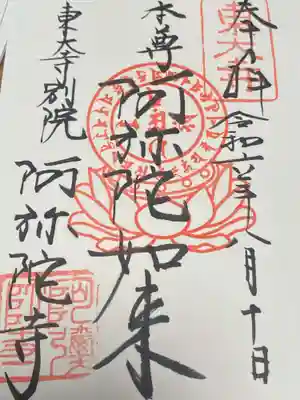 奉拝
令和六年八月十日
本尊
阿弥陀如来
東大寺別院
阿弥陀寺
東大寺